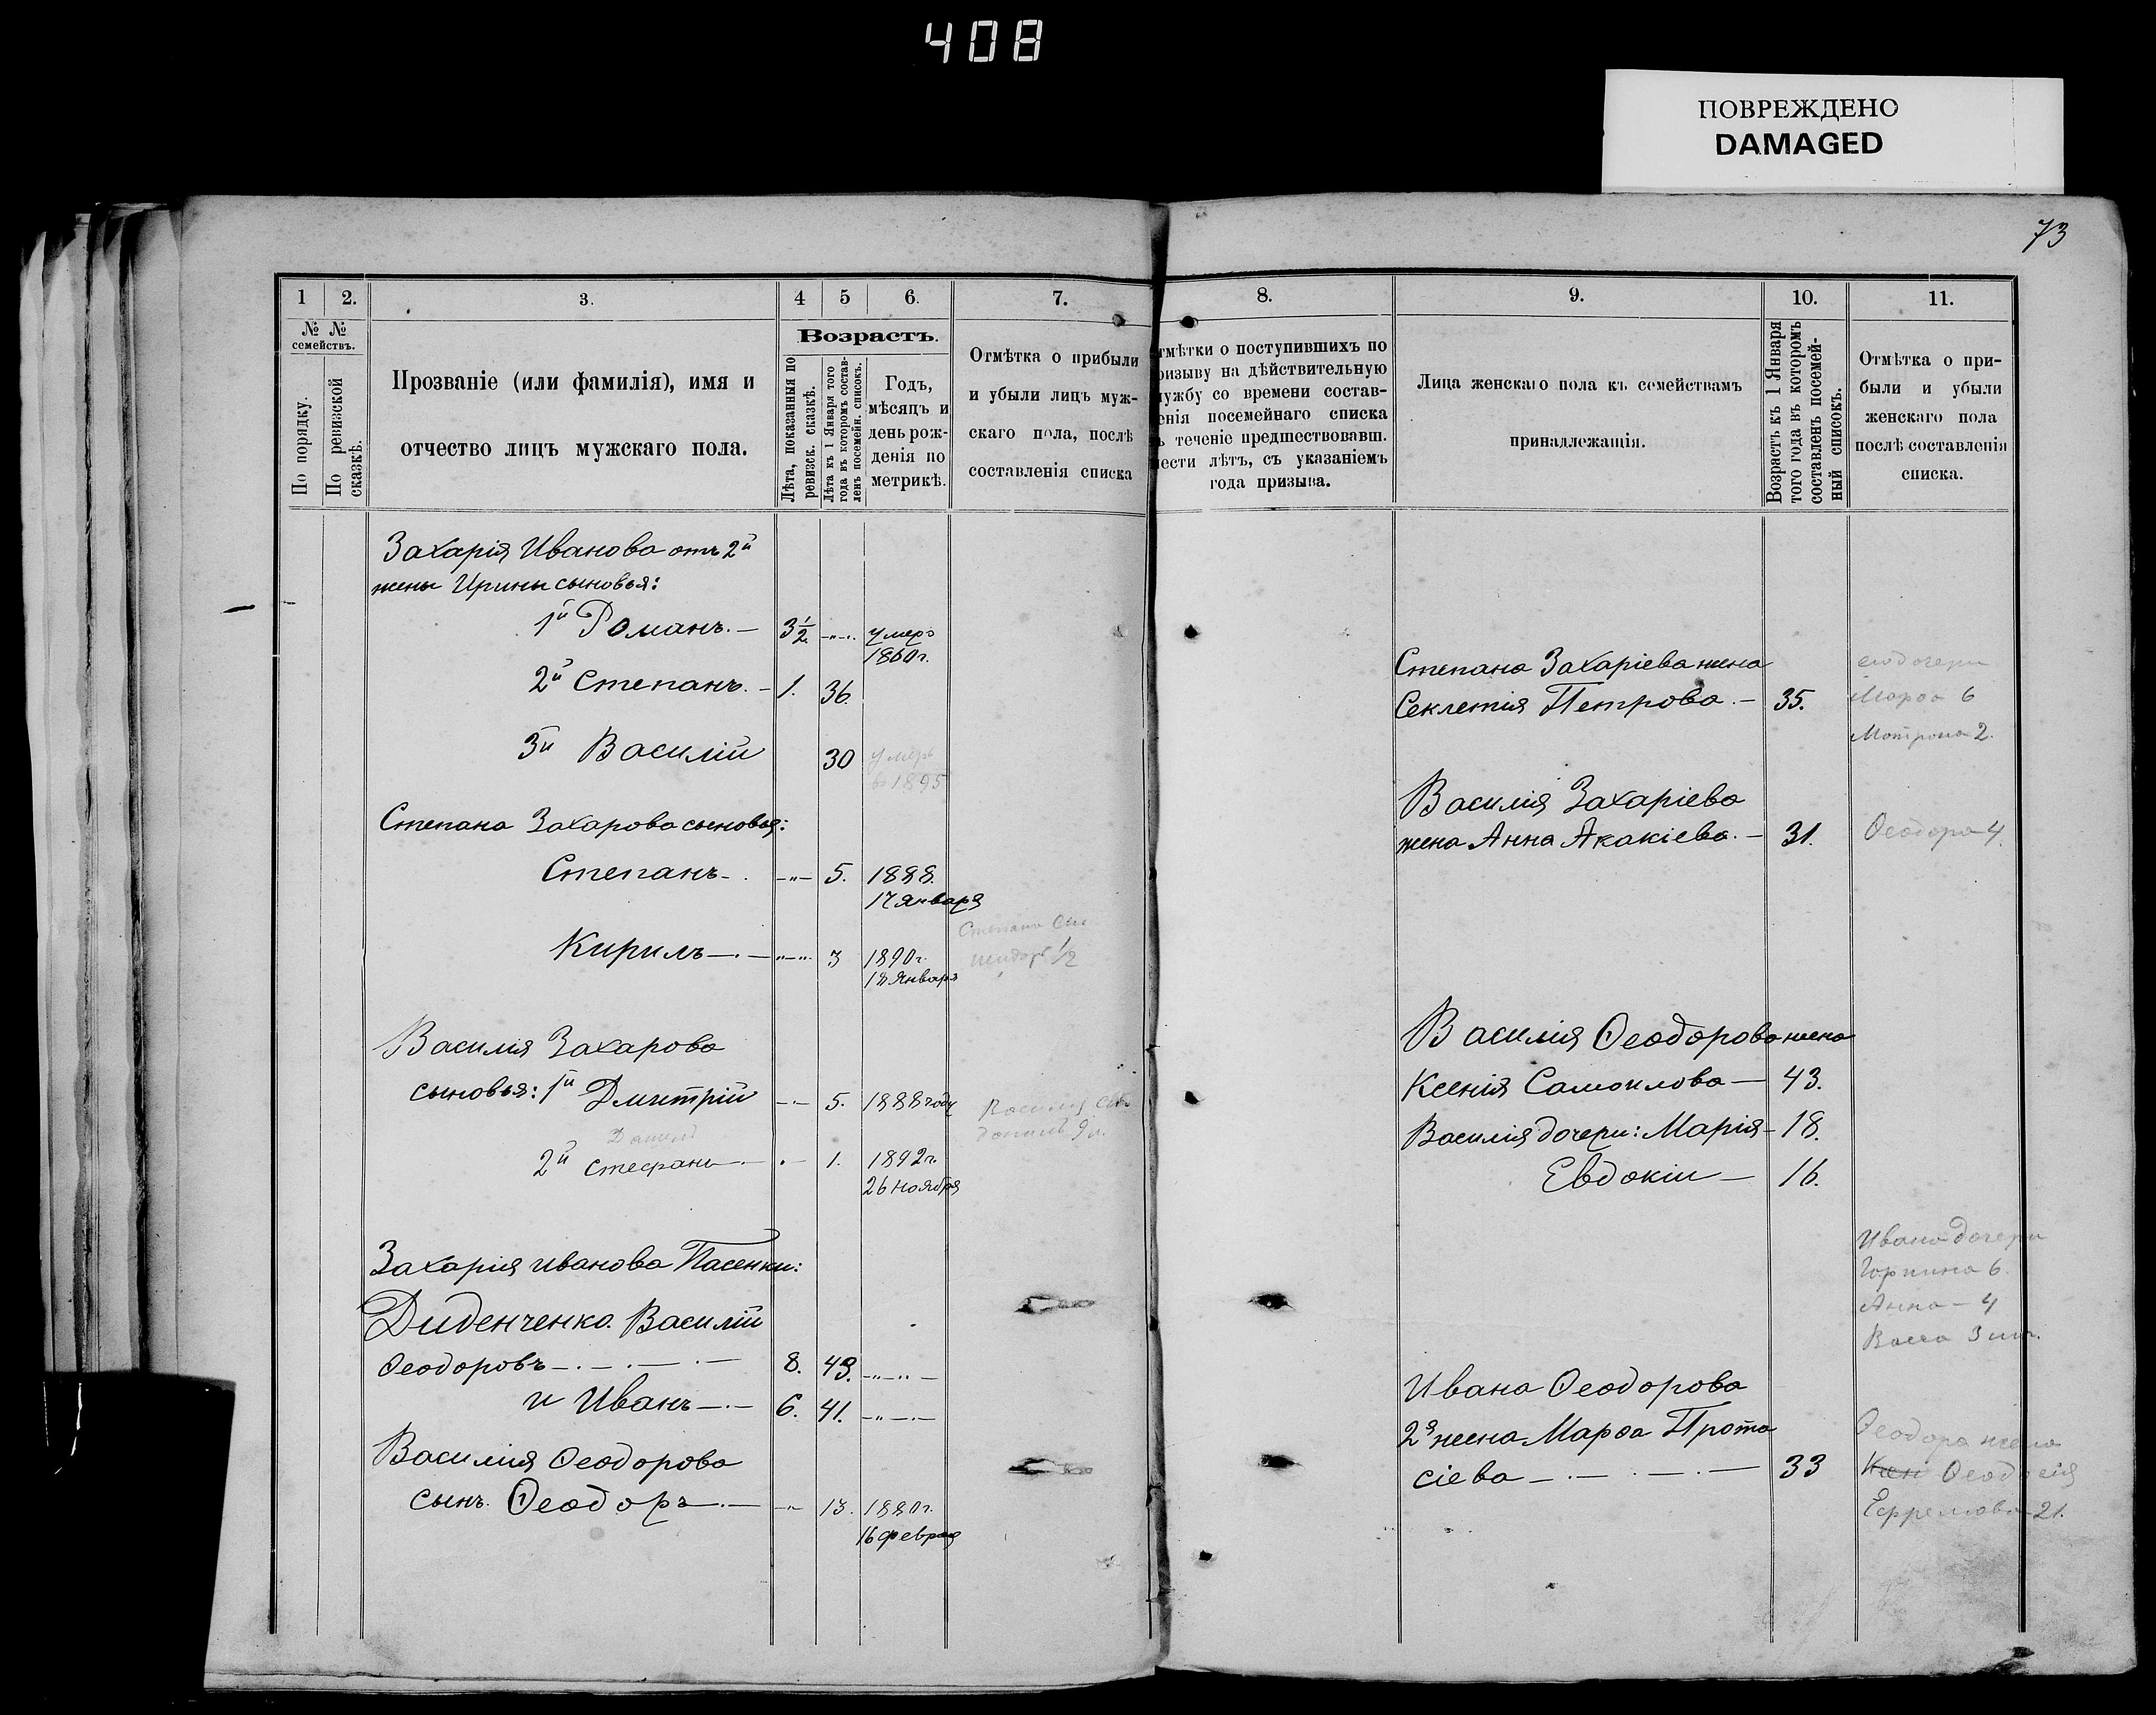 408
ПОВРЕЖДЕНО
DAMAGED
73
1
2.
3.
4
5
6.
7.
№ №
семействъ.
По порядку.
По ревизской
сказкѣ.
Прозваніе (или фамилія), имя и
отчество лицъ мужскаго пола.
Возрастъ.
Лѣта, показанныя по
ревизск. сказкѣ.
Лѣта къ 1 Января того
года въ которомъ состав-
ленъ посемейн. списокъ.
Годъ,
мѣсяцъ и
день рож-
денія по
метрикѣ.
Отмѣтка о прибыли
и убыли лицъ муж-
скаго пола, послѣ
составленія списка
Захарія Иванова отъ 2й
жены Ирины сыновья:
1й Романъ. — 3½ умеръ
1860г.
2й Степанъ. — 1. 36.
3й Василій 30 умеръ
в 1895
Степана Захарова сыновья:
Степанъ 5. 1888.
17 января
Кирилъ 3 1890г.
18 января
Степана
½
Василія Захарова
сыновья: 1й Дмитрій 5. 1888 году
Василія
Данилъ
2й Стефанъ 1. 1892г.
26 ноября
Захарія Иванова Пасенки:
Диденченко Василій
Ѳеодоровъ 8. 43.
и Иванъ 6. 41.
Василія Ѳеодорова
сынъ Ѳеодоръ 13. 1880г.
16 февраля
8.
9.
10.
11.
тмѣтки о поступившихъ по
ризыву на дѣйствительную
лужбу со времени состав-
енія посемейнаго списка
ъ теченіе предшествовавш.
ести лѣтъ, съ указаніемъ
года призыва.
Лица женскаго пола къ семействамъ
принадлежащія.
Возрастъ къ 1 Января
того года въ которомъ
составленъ посемей-
ный списокъ.
Отмѣтка о при-
были и убыли
женскаго пола
послѣ составленія
списка.
Степана Захаріева жена
Секлетія Петрова. — 35.
его дочери
Марѳа 6
Мотрона 2.
Василія Захаріева
жена Анна Акакіева. — 31.
Ѳеодора 4.
Василія Ѳеодорова жена
Ксенія Самоилова — 43.
Василія дочери: Марія — 18.
Евдокіи — 16.
Ивана дочери
Горпина 6.
Анна — 4
Васса 3
Ивана Ѳеодорова
2я жена Марѳа Прота
сіева 33
Ѳеодора жена
Ксен Ѳеодосія
Ефремова 21.